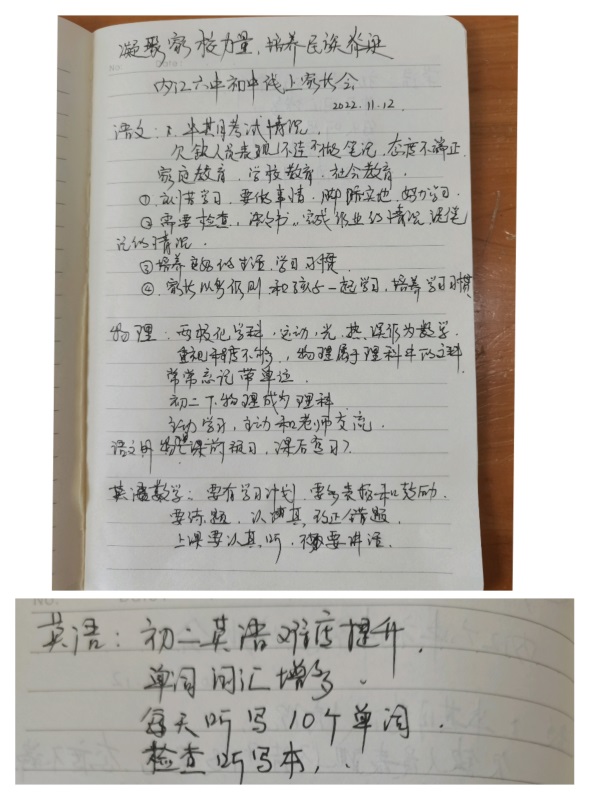 凝聚家校力量,培养民族脊梁
内江六中初中线上家长会
2022.11.12.
语文:1. 半期考试情况.
欠缺人员表现不佳不做笔记,态度不端正.
家庭教育,学校教育,社会教育.
①刻苦学习,要做事情,脚踏实地,好好学习.
②需要检查,读书,完成作业的情况,
记的情况.
③培养良好的生活,学习习惯
④家长以身作则和孩子一起学习,培养学习习惯
物理:两极化学科,运动,光,热,误作为数学.
重视程度不够,物理属于理科中的文科
常常忘记带单位.
初二下物理成为理科
主动学习,主动和老师交流.
课前预习,课后复习?
数学:要有学习计划,要多表扬和鼓励.
要练题,认真,改正错题.
上课要认真听,不要讲话.
No.
英语:初二英语难度提升.
单词词汇增多.
每天听写10个单词.
检查听写本,.